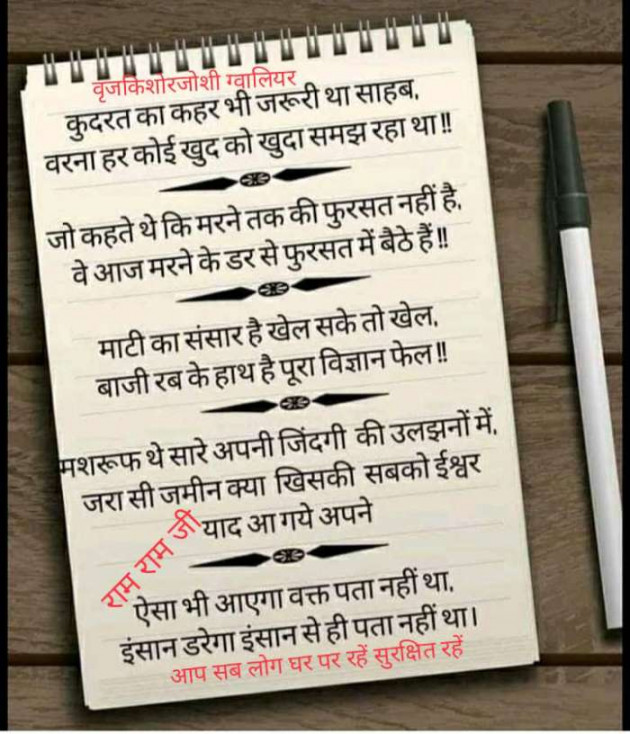 वृजकिशोरजोशी ग्वालियर
कुदरत का कहर भी जरूरी था साहब,
वरना हर कोई खुद को खुदा समझ रहा था!!
जो कहते थे कि मरने तक की फुरसत नहीं है,
वे आज मरने के डर से फुरसत में बैठे हैं!!
माटी का संसार है खेल सके तो खेल,
बाजी रब के हाथ है पूरा विज्ञान फेल!!
मशरूफ थे सारे अपनी जिंदगी की उलझनों में,
जरा सी जमीन क्या खिसकी सबको ईश्वर
याद आ गये अपने
राम राम जी
ऐसा भी आएगा वक्त पता नहीं था,
इंसान डरेगा इंसान से ही पता नहीं था।
आप सब लोग घर पर रहें सुरक्षित रहें